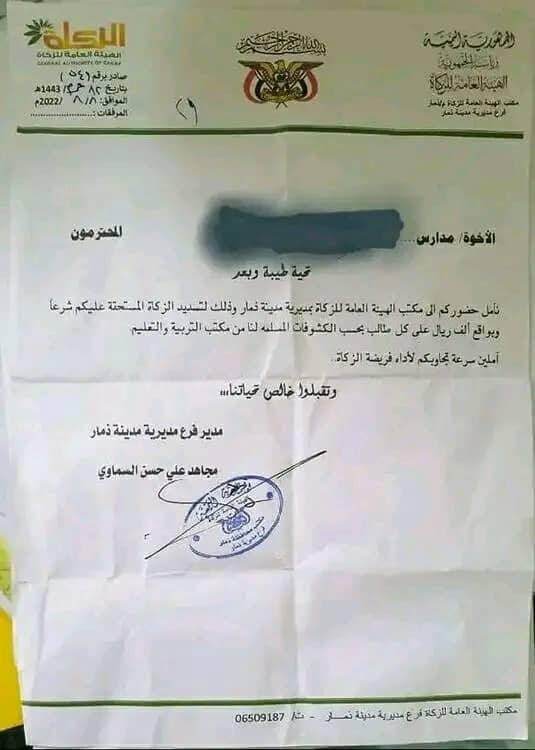 الجمهورية اليمنية
رئاسة الجمهورية
الهيئة العامة للزكاة
مكتب الهيئة العامة للزكاة م/ذمار
فرع مديرية مدينة ذمار
بسم الله الرحمن الرحيم
الزكاة
الهيئة العامة للزكاة
GENERAL AUTHORITY OF ZAKAT
صادر برقم (
بتاريخ /1443هـ
الموافق: ٨/٨/2022م
المرفقات:
الأخوة/ مدارس... المحترمون
تحية طيبة وبعد
نأمل حضوركم الى مكتب الهيئة العامة للزكاة بمديرية مدينة ذمار وذلك لتسديد الزكاة المستحقة عليكم شرعاً
وبواقع ألف ريال على كل طالب بحسب الكشوفات المسلمه لنا من مكتب التربية والتعليم.
أملين سرعة تجاوبكم لأداء فريضة الزكاة..
وتقبلوا خالص تحياتنا،،،
مدير فرع مديرية مدينة ذمار
مجاهد علي حسن السماوي
مكتب الهيئة العامة للزكاة فرع مديرية مدينة ذمـــار - ت/ 06509187